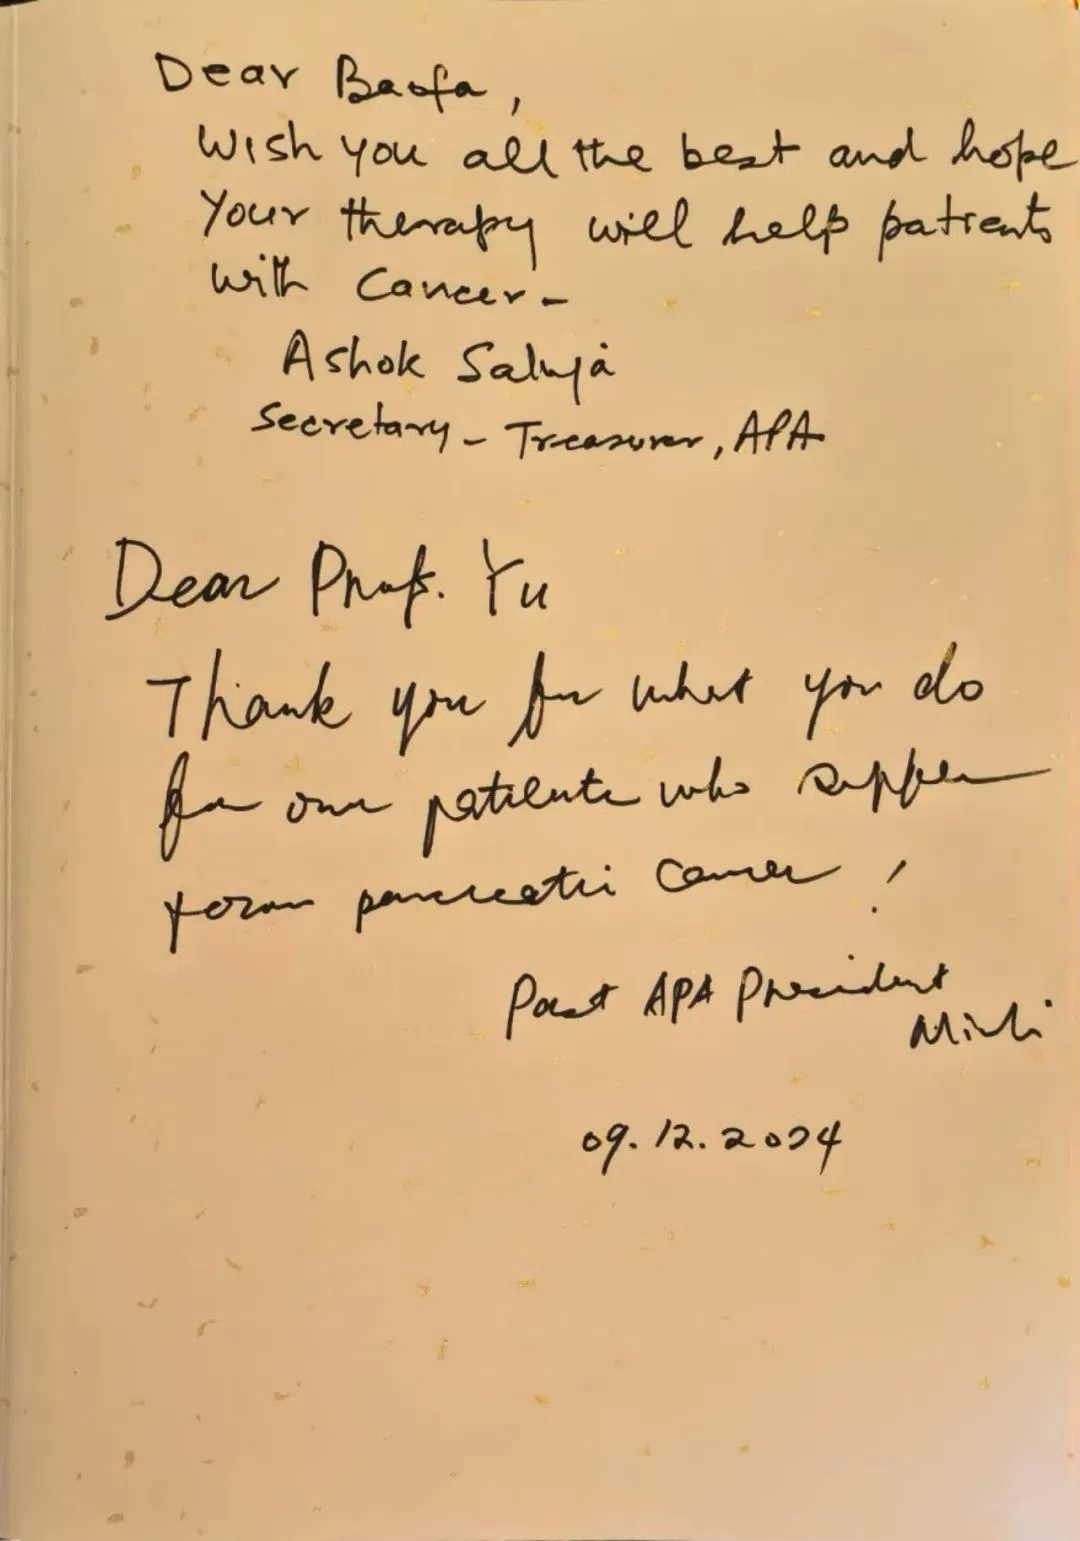 Dear Baofa,
Wish you all the best and hope
Your therapy will help patients
with Cancer -
Ashok Saluja
Secretary - Treasurer, APA
Dear Prof. Yu
Thank you for what you do
for our patients who suffer
from pancreatic cancer!
Past APA President
09.12.2024